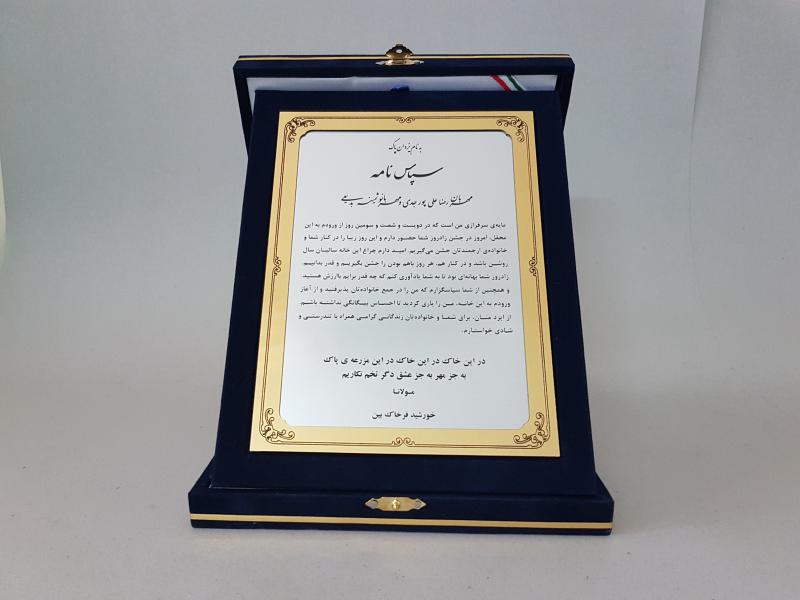 به نام یزدان پاک
سپاس نامه
مهربان رضا علی پور جدی و مهربانو ثمینه بدیعی
مایه‌ی سرفرازی من است که در دویست و شصت و سومین روز از ورودم به این
محفل، امروز در جشن زادروز شما حضور دارم و این روز زیبا را در کنار شما و
خانواده‌ی ارجمندتان جشن می‌گیریم. امید دارم چراغ این خانه سالیان سال
روشن باشد و در کنار هم، هر روز باهم بودن را جشن بگیریم و قدر بدانیم.
زادروز شما بهانه‌ای بود تا به شما یادآوری کنم که چه قدر برایم باارزش هستید.
و همچنین از شما سپاسگزارم که من را در جمع خانواده‌تان پذیرفتید و از آغاز
ورودم به این خانه، من را یاری کردید تا احساس بیگانگی نداشته باشم.
از ایزد منان، برای شما و خانواده‌تان زندگانی گرامی همراه با تندرستی و
شادی خواستارم.
در این خاک در این خاک در این مزرعه ی پاک
به جز مهر به جز عشق دگر تخم نکاریم
مولانا
خورشید فرخاک بین